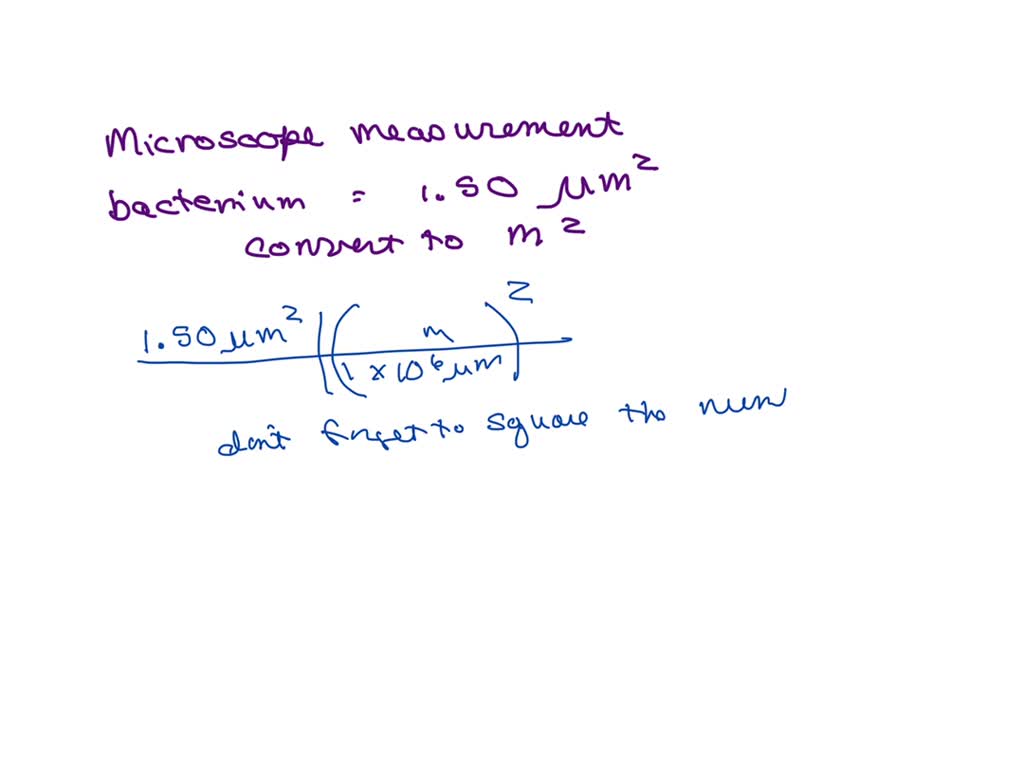 Microscope measurement
bacterium = 1.50 μm²
convert to m²
1.50 μm² | ( m / 1 × 10⁶ μm )²
don't forget to square the num